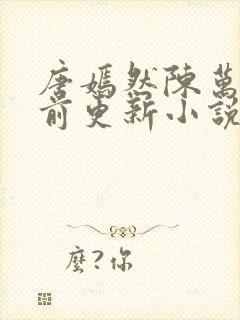 唐嫣然陳萬
前更新小說
麼?你